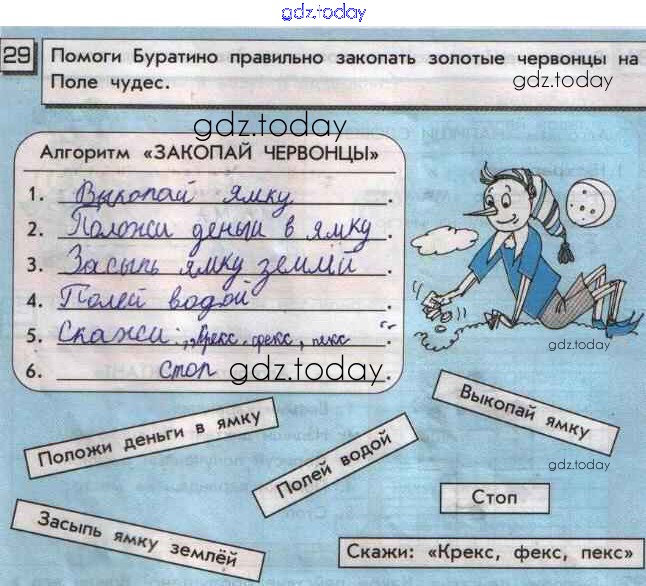 gdz.today
29 Помоги Буратино правильно закопать золотые червонцы на
Поле чудес.
gdz.today
gdz.today
Алгоритм «ЗАКОПАЙ ЧЕРВОНЦЫ»
1. Выкопай ямку.
2. Положи деньги в ямку.
3. Засыпь ямку землёй.
4. Полей водой.
5. Скажи: „Крекс, фекс, пекс“.
6. Стоп.
gdz.today
gdz.today
Положи деньги в ямку
Полей водой
Выкопай ямку
gdz.today
Стоп
Засыпь ямку землёй
Скажи: «Крекс, фекс, пекс»